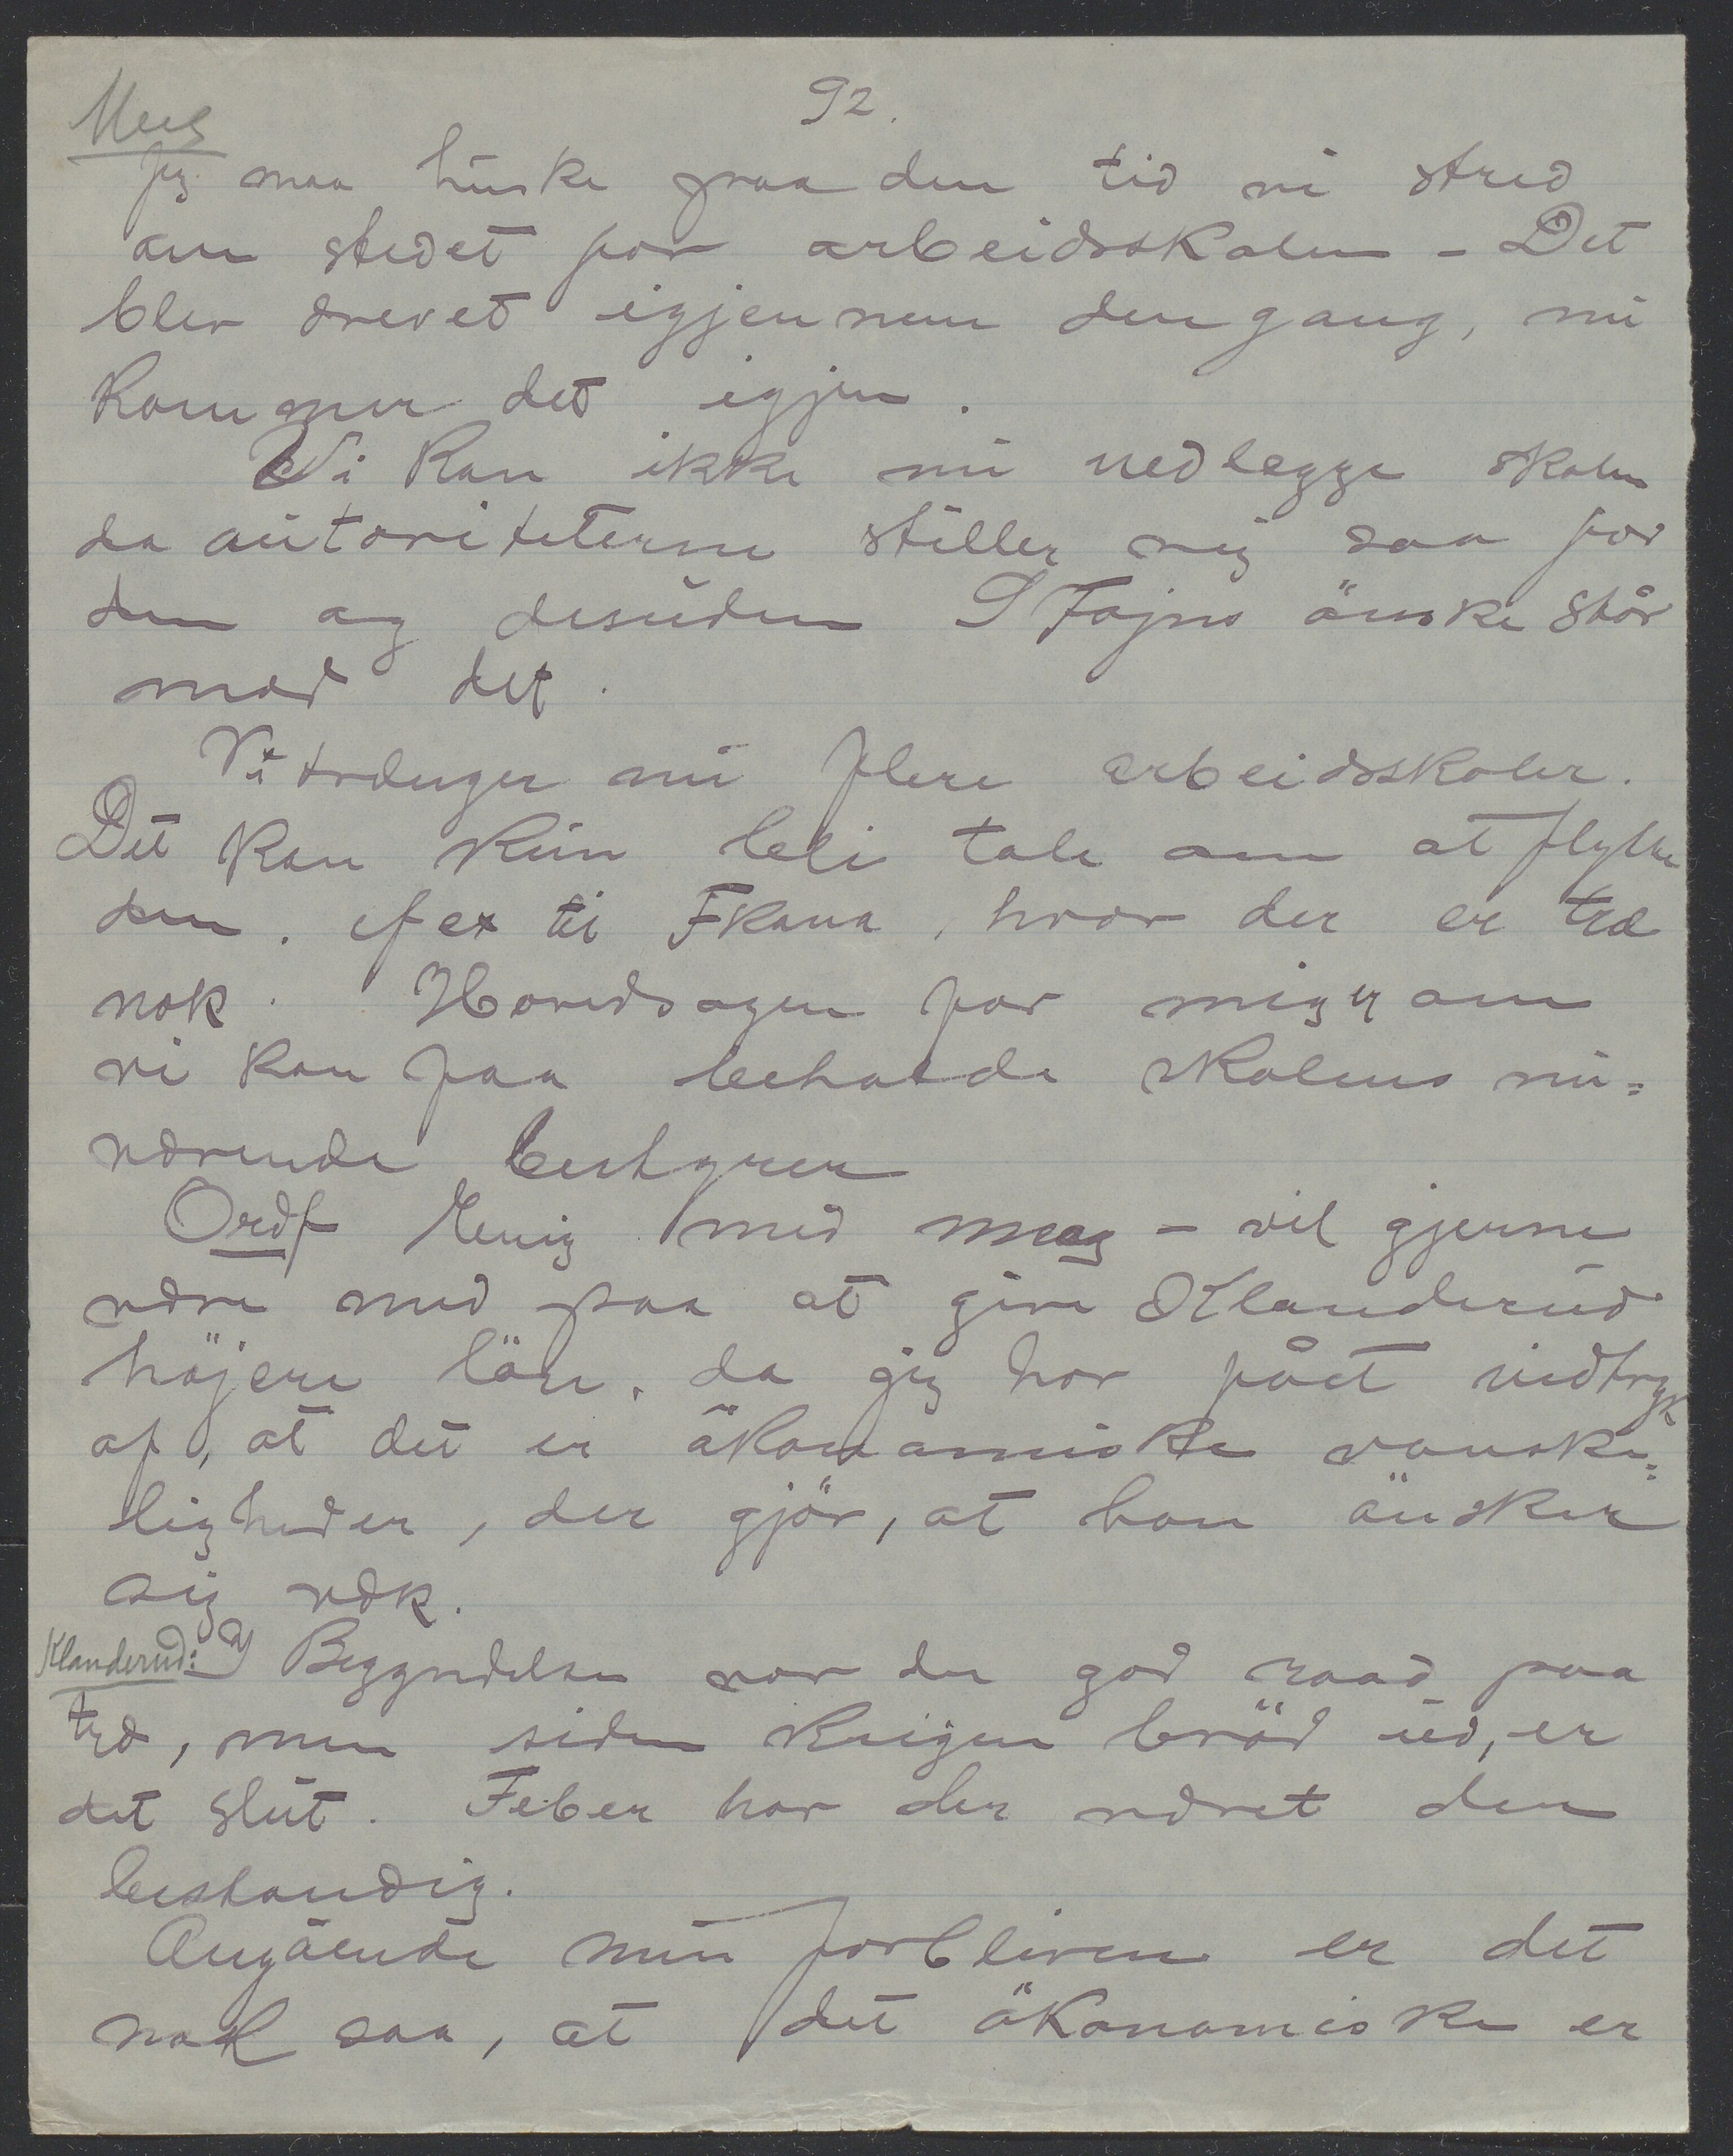 92.
Meeg
Jeg maa huske paa den tid vi stred
om stedet for arbeidsskolen - Det
blev drevet igjennem dengang, nu
kommer det igjen.
Vi kan ikke nu nedlegge skolen
da autoriteterne stiller sig saa for
den og desuden S Fajns önske står
mod det.
Vi trænger nu flere arbeidsskoler.
Det kan kun bli tale om at flytte
den. f ex til Fkana, hvor der er træ
nok. Hovedsagen for mig er om
vi kan faa beholde skolens nu=
værende bestyrer
Ordf Enig med Meeg - vil gjerne
være med paa at give Klanderud
höjere lön, da jeg har fået indtryk
af, at det er ökonomiske vanske=
ligheder, der gjör, at han önsker
sig væk.
Klanderud: I Begyndelsen var der god raad paa
træ, men siden krigen bröd ud, er
det slut. Feber har der været den
bestandig.
Angående min forbliven er det
nok saa, at det ökonomiske er